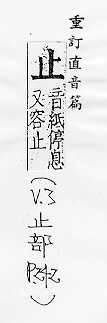 重訂直音篇
止 音紙停息
又容止
(V.3 止部